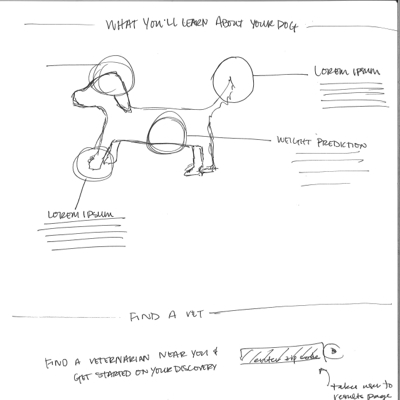 WHAT YOU'LL LEARN ABOUT YOUR DOG
LOREM IPSUM
WEIGHT PREDICTION
LOREM IPSUM
FIND A VET
FIND A VETERINARIAN NEAR YOU &
GET STARTED ON YOUR DISCOVERY
enter zip code
takes user to
results page